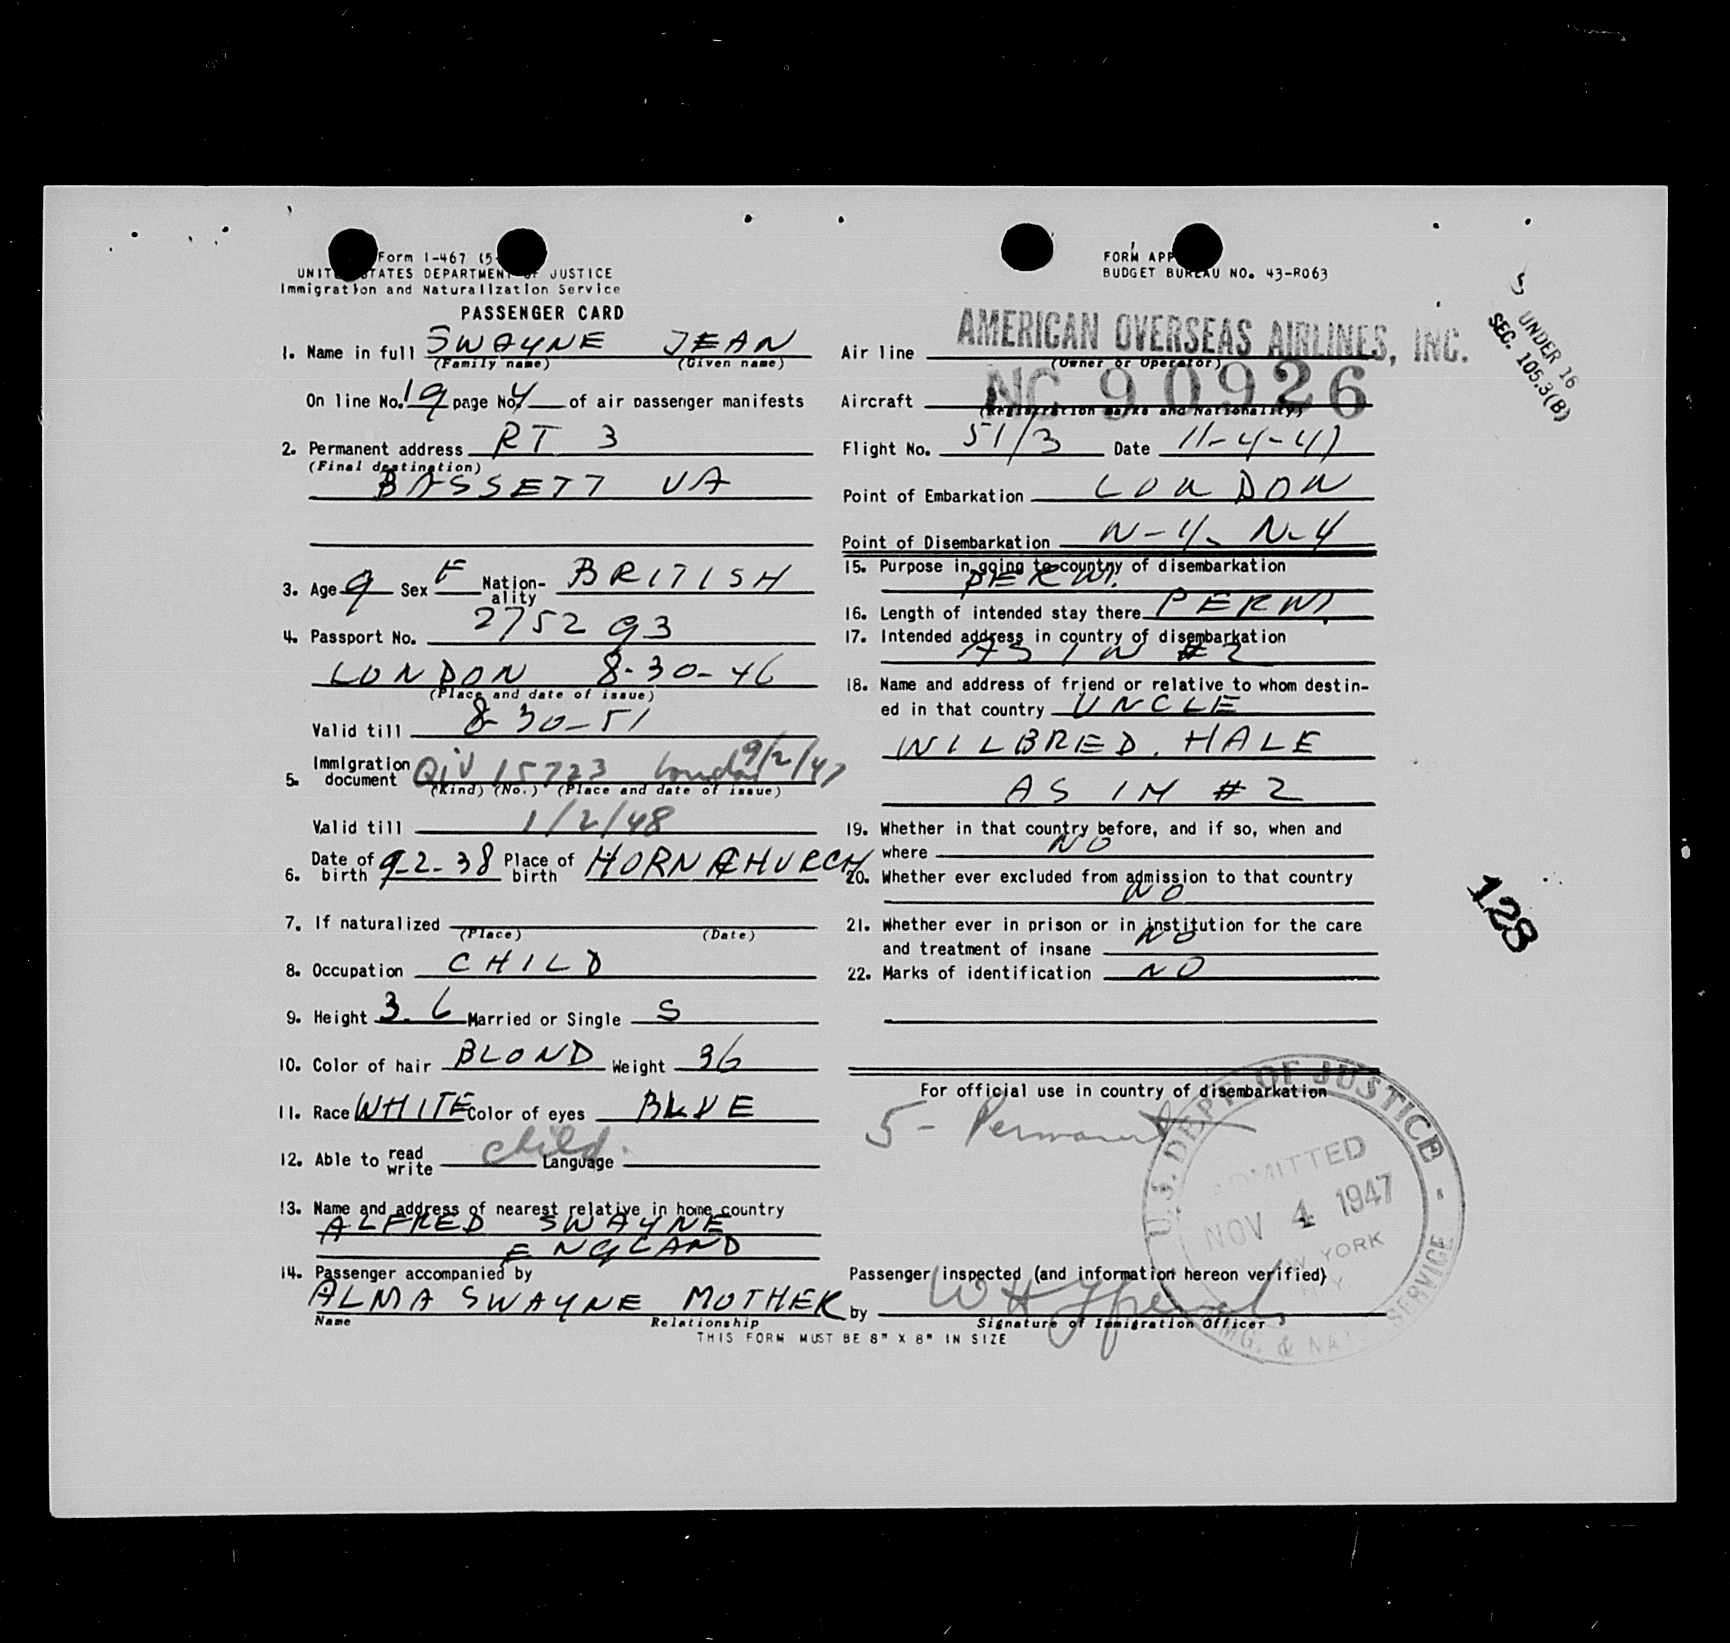 Form I-467 (5-
UNITED STATES DEPARTMENT OF JUSTICE
Immigration and Naturalization Service
PASSENGER CARD
1. Name in full SWAYNE JEAN
(Family name) (Given name)
On line No. 19 page No. 4 of air passenger manifests
2. Permanent address RT 3
(Final destination)
BASSETT VA
3. Age 9 Sex F Nation-ality BRITISH
4. Passport No. 275293
LONDON 8-30-46
(Place and date of issue)
Valid till 8-30-51
5. Immigration document QIV 15723 London 9/2/47
(Kind) (No.) (Place and date of issue)
Valid till 1/2/48
6. Date of birth 9-2-38 Place of birth HORNCHURCH
7. If naturalized
(Place) (Date)
8. Occupation CHILD
9. Height 3.6 Married or Single S
10. Color of hair BLOND Weight 36
11. Race WHITE Color of eyes BLUE
12. Able to read write child. Language
13. Name and address of nearest relative in home country
ALFRED SWAYNE
ENGLAND
14. Passenger accompanied by
ALMA SWAYNE MOTHER
Name Relationship
THIS FORM MUST BE 8" X 8" IN SIZE
FORM APP
BUDGET BUREAU NO. 43-R063
Air line AMERICAN OVERSEAS AIRLINES, INC.
(Owner or Operator)
Aircraft NC 90926
(Registration marks and Nationality)
Flight No. 51/3 Date 11-4-47
Point of Embarkation LONDON
Point of Disembarkation N-Y. N-Y
15. Purpose in going to country of disembarkation
PERM.
16. Length of intended stay there PERM.
17. Intended address in country of disembarkation
AS IN #2
18. Name and address of friend or relative to whom destin-
ed in that country UNCLE
WILBRED. HALE
AS IN #2
19. Whether in that country before, and if so, when and
where NO
20. Whether ever excluded from admission to that country
NO
21. Whether ever in prison or in institution for the care
and treatment of insane NO
22. Marks of identification NO
For official use in country of disembarkation
5 - Permanent
U.S. DEPT. OF JUSTICE
ADMITTED
NOV 4 1947
NEW YORK
N.Y.
IMMIG. & NAT. SERVICE
Passenger inspected (and information hereon verified)
by W H
Signature of Immigration Officer
UNDER 16
SEC. 105.3(B)
128